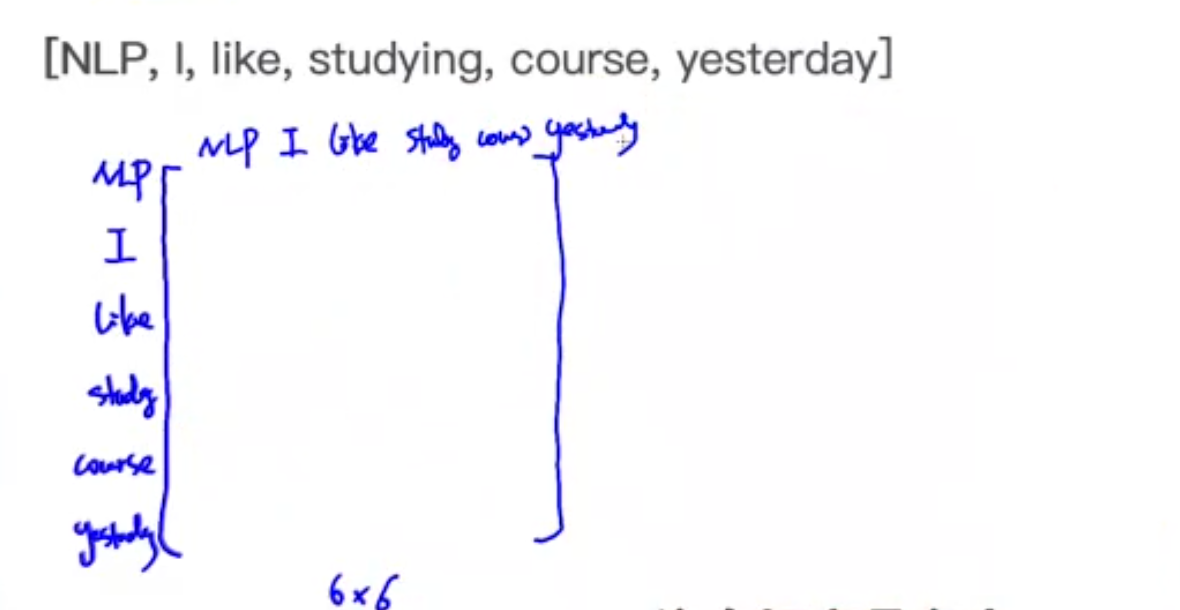 [NLP, I, like, studying, course, yesterday]
NLP I like study course yesterday
NLP
I
like
study
course
yesterday
6×6